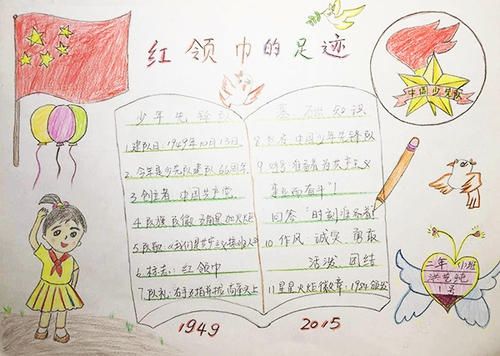 红领巾的足迹
中国少先队
少年先锋队
1.建队日:1949年10月13日
2.今年是少先队建队66周年
3.创建者 中国共产党
4.队旗 队徽 五角星加火炬
5.队歌:《我们是共产主义接班人》
6.标志:红领巾
7.队礼:右手五指并拢高举头上
基础知识
8.队名 中国少年先锋队
9.呼号 准备着为共产主义
事业而奋斗!
回答"时刻准备着!
10.作风 诚实 勇敢
活泼 团结
11.星星火炬徽章:
二年 班
1号
1949
2015